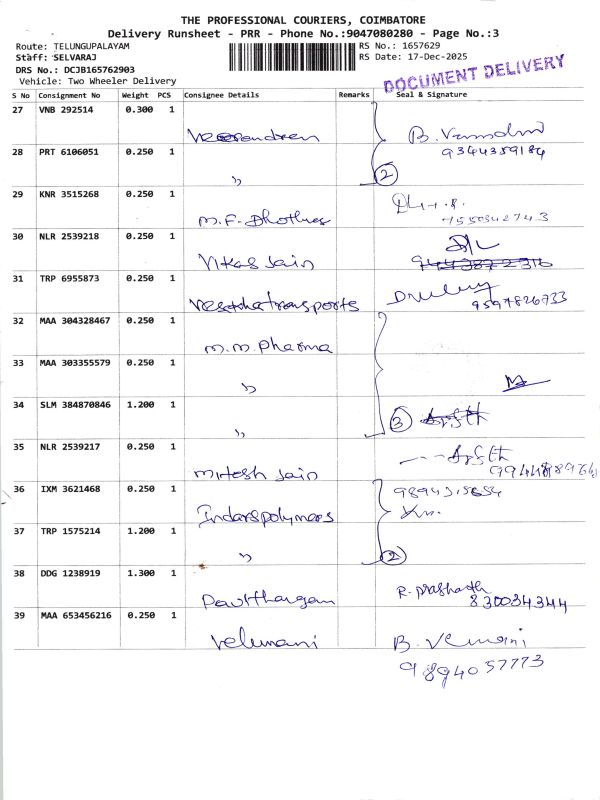 THE PROFESSIONAL COURIERS, COIMBATORE
Delivery Runsheet - PRR - Phone No.:9047080280 - Page No.:3
Route: TELUNGUPALAYAM
RS No.: 1657629
Staff: SELVARAJ
RS Date: 17-Dec-2025
DRS No.: DCJB165762903
Vehicle: Two Wheeler Delivery
DOCUMENT DELIVERY
S No Consignment No Weight PCS Consignee Details Remarks Seal & Signature
27 VNB 292514 0.300 1
28 PRT 6106051 0.250 1
9344359184
〃
2
29 KNR 3515268 0.250 1
M.F. Dhothres
30 NLR 2539218 0.250 1
Vikas Jain
31 TRP 6955873 0.250 1
9597826733
32 MAA 304328467 0.250 1
M.M. Pharma
33 MAA 303355579 0.250 1
〃
34 SLM 384870846 1.200 1
〃 3
35 NLR 2539217 0.250 1
Mitesh Jain
36 IXM 3621468 0.250 1
37 TRP 1575214 1.200 1
〃 2
38 DDG 1238919 1.300 1
R. Prashanth
830034344
39 MAA 653456216 0.250 1
Velumani B. Vemani
9894057773